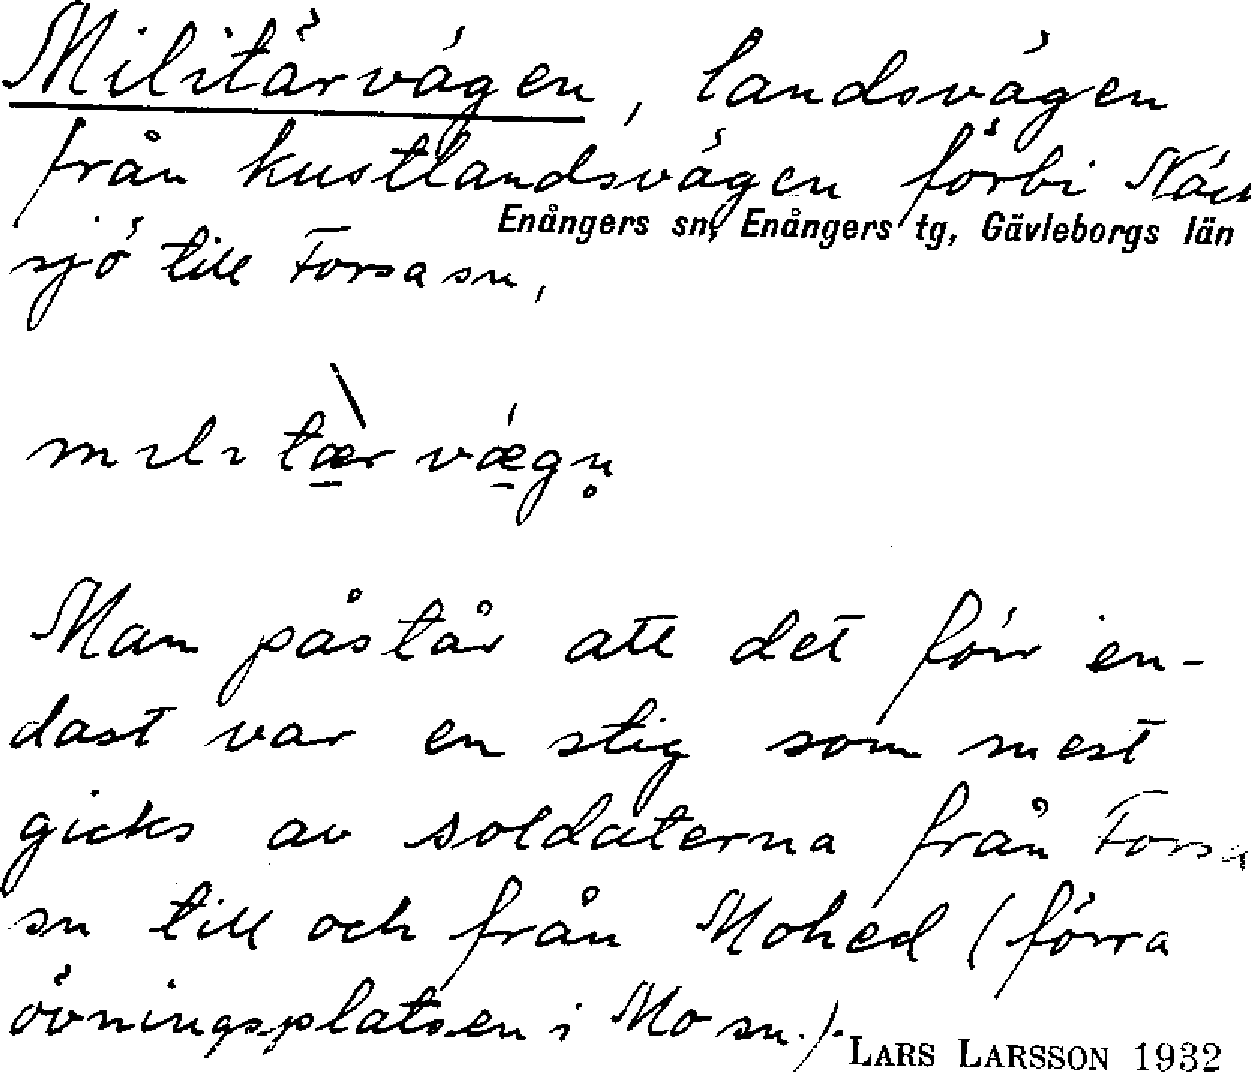 Militärvägen, landsvägen
från kustlandsvägen förbi Näs
Enångers sn, Enångers tg, Gävleborgs län
sjö till Forsa sn,
mılıtær vægn̥
Man påstår att det förr en-
dast var en stig som mest
gicks av soldaterna från Forsa
sn till och från Mohed (förra
övningsplatsen i Mo sn.).
LARS LARSSON 1932